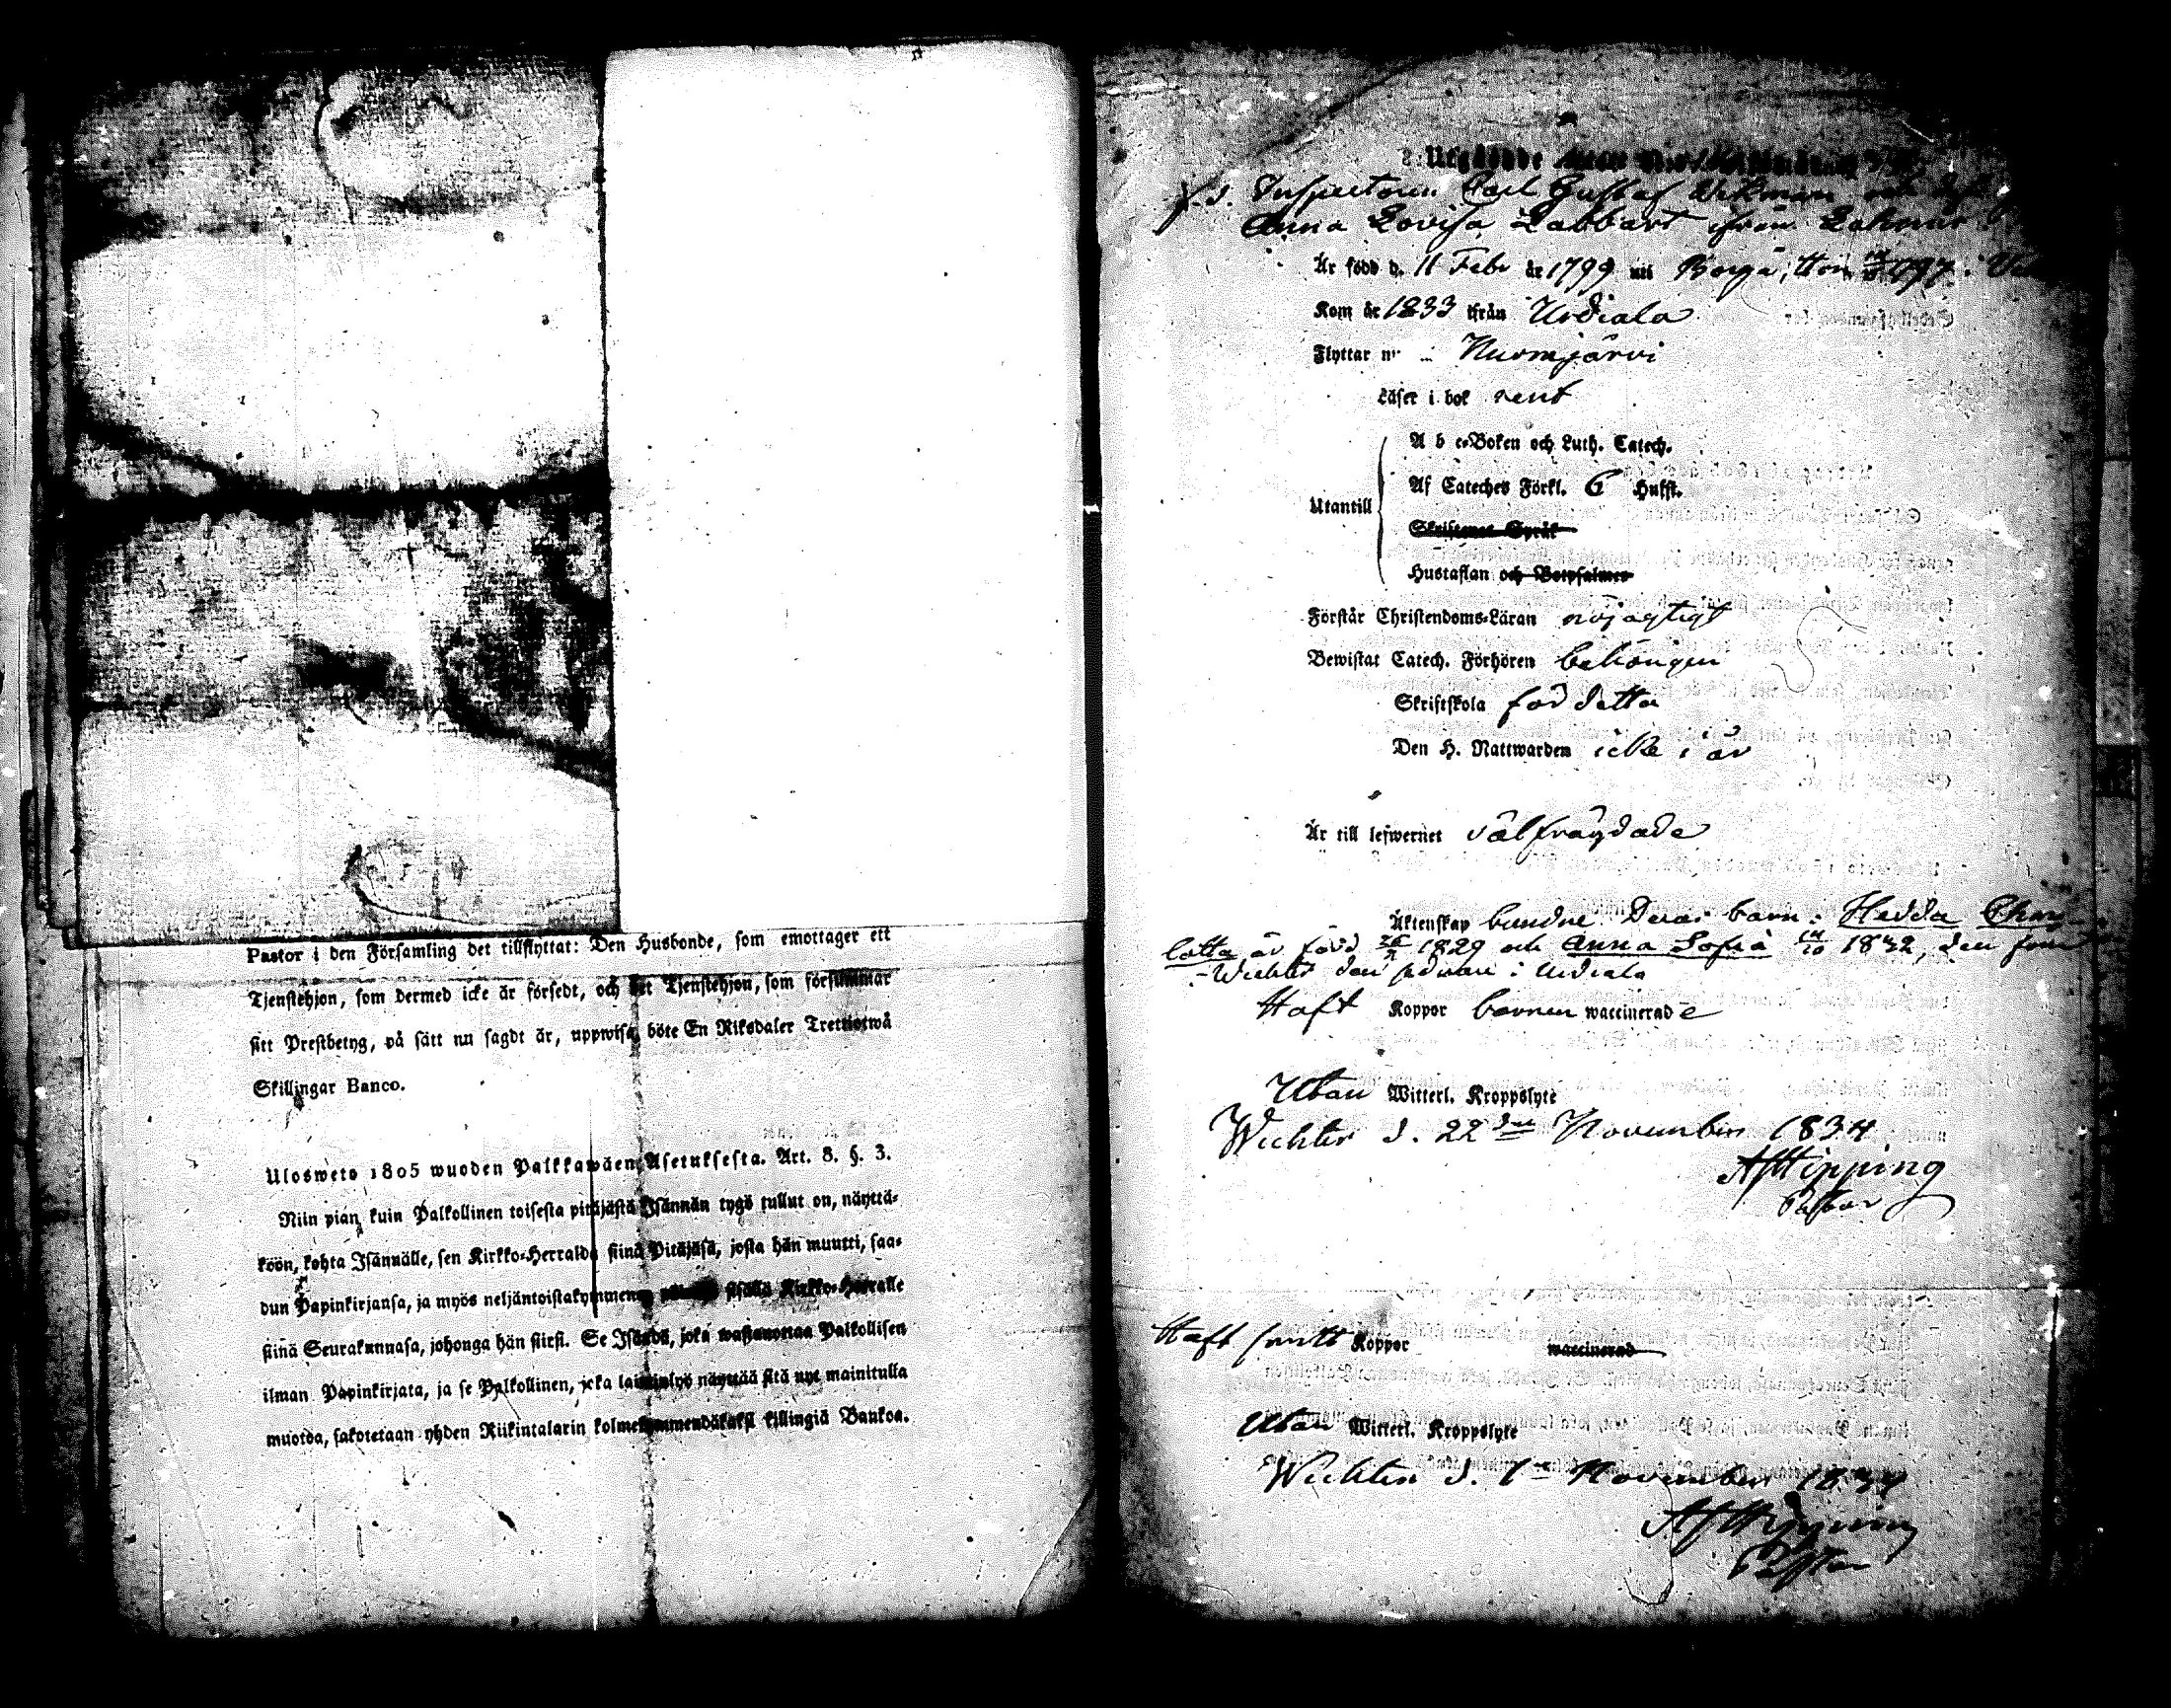 Pastor i den Församling det tillflyttat: Den Husbonde, som emottager ett
Tjenstehjon, som dermed icke är försedt, och det Tjenstehjon, som försummar
sitt Prestbetyg, på sätt nu sagdt är, uppwisa, böte En Riksdaler Trettiotwå
Skillingar Banco.
Ulosweto 1805 wuoden Palkkawäen Asetuksesta. Art. 8. §. 3.
Niin pian kuin Palkollinen toisesta pitäjästä Isännän tygö tullut on, näyttä-
köön, kohta Isännälle, sen Kirkko-Herralda siinä Pitäjäsä, josta hän muutti, saa-
dun Papinkirjansa, ja myös neljäntoistakymmenen sisällä Kirkko-Herralle
siinä Seurakunnasa, johonga hän siirsi. Se Isändä, joka wastanottaa Palkollisen
ilman Papinkirjata, ja se Palkollinen, joka laiminlyö näyttää sitä nyt mainitulla
muotoa, sakotetaan yhden Riikintalarin kolmekymmendäkaksi killingiä Bankoa.
f.d. Inspectoren Carl Gustaf Wikman och
Anna Lovisa Labbart ifrån
Är född d. 11 Febr år 1799 uti Borgå, Hon 1797 i
Kom år 1833 ifrån Urdiala
Flyttar Nurmijärvi
Läser i bok rent
A b c-Boken och Luth. Catech.
Utantill Af Cateches Förkl. 6 Hufst.
Skriftenes Språk
Hustaflan och Botpsalmer
Förstår Christendoms-Läran nöjagtigt
Bewistat Catech. Förhören behörigen
Skriftskola för detta
Den H. Nattwarden icke i år
Är till lefwernet välfrägdade
Äktenskap bundne Deras barn: Hedda Char-
lotta är född 1829 och Anna Sofia 1832, den förra
i Wichtis den sednare i Urdiala
Haft Koppor barnen waccinerade
Utan Witterl. Kroppslyte
Wichtis d. 22 November 1834
A J Hipping
Pastor
Haft Koppor waccinerad
Utan Witterl. Kroppslyte
Wichtis d. November 1834
A J Hipping
Pastor